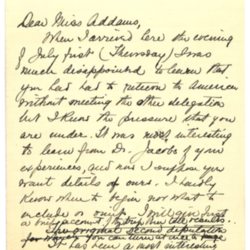 Dear Miss Addams,
When I arrived here the evening
of July first (Thursday) I was
much disappointed to learn that
you had had to return to America
without meeting the other delegation
but I know the pressure that you
are under. It was most interesting
to learn from Dr. Jacobs of your
experiences, and now I suppose you
want details of ours. I hardly
know when to begin nor what to
include or omit. I will give just
The original second deputation
has been a most interesting